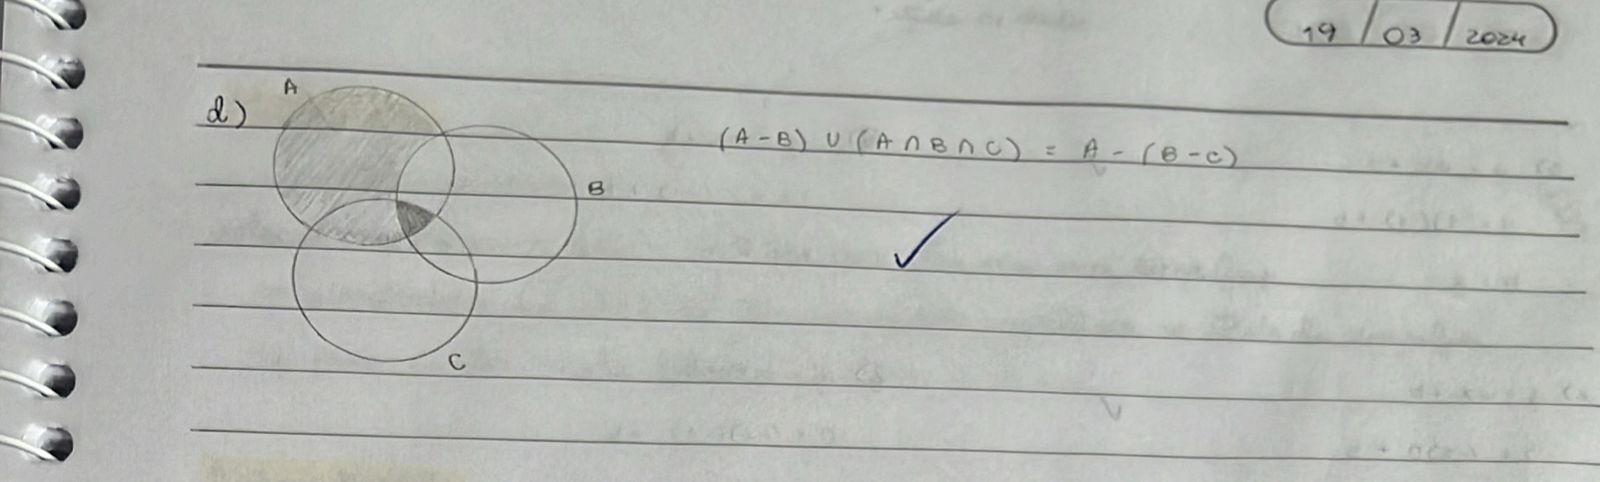 19 / 03 / 2024
d)
A
(A - B) ∪ (A ∩ B ∩ C) = A - (B - C)
B
C